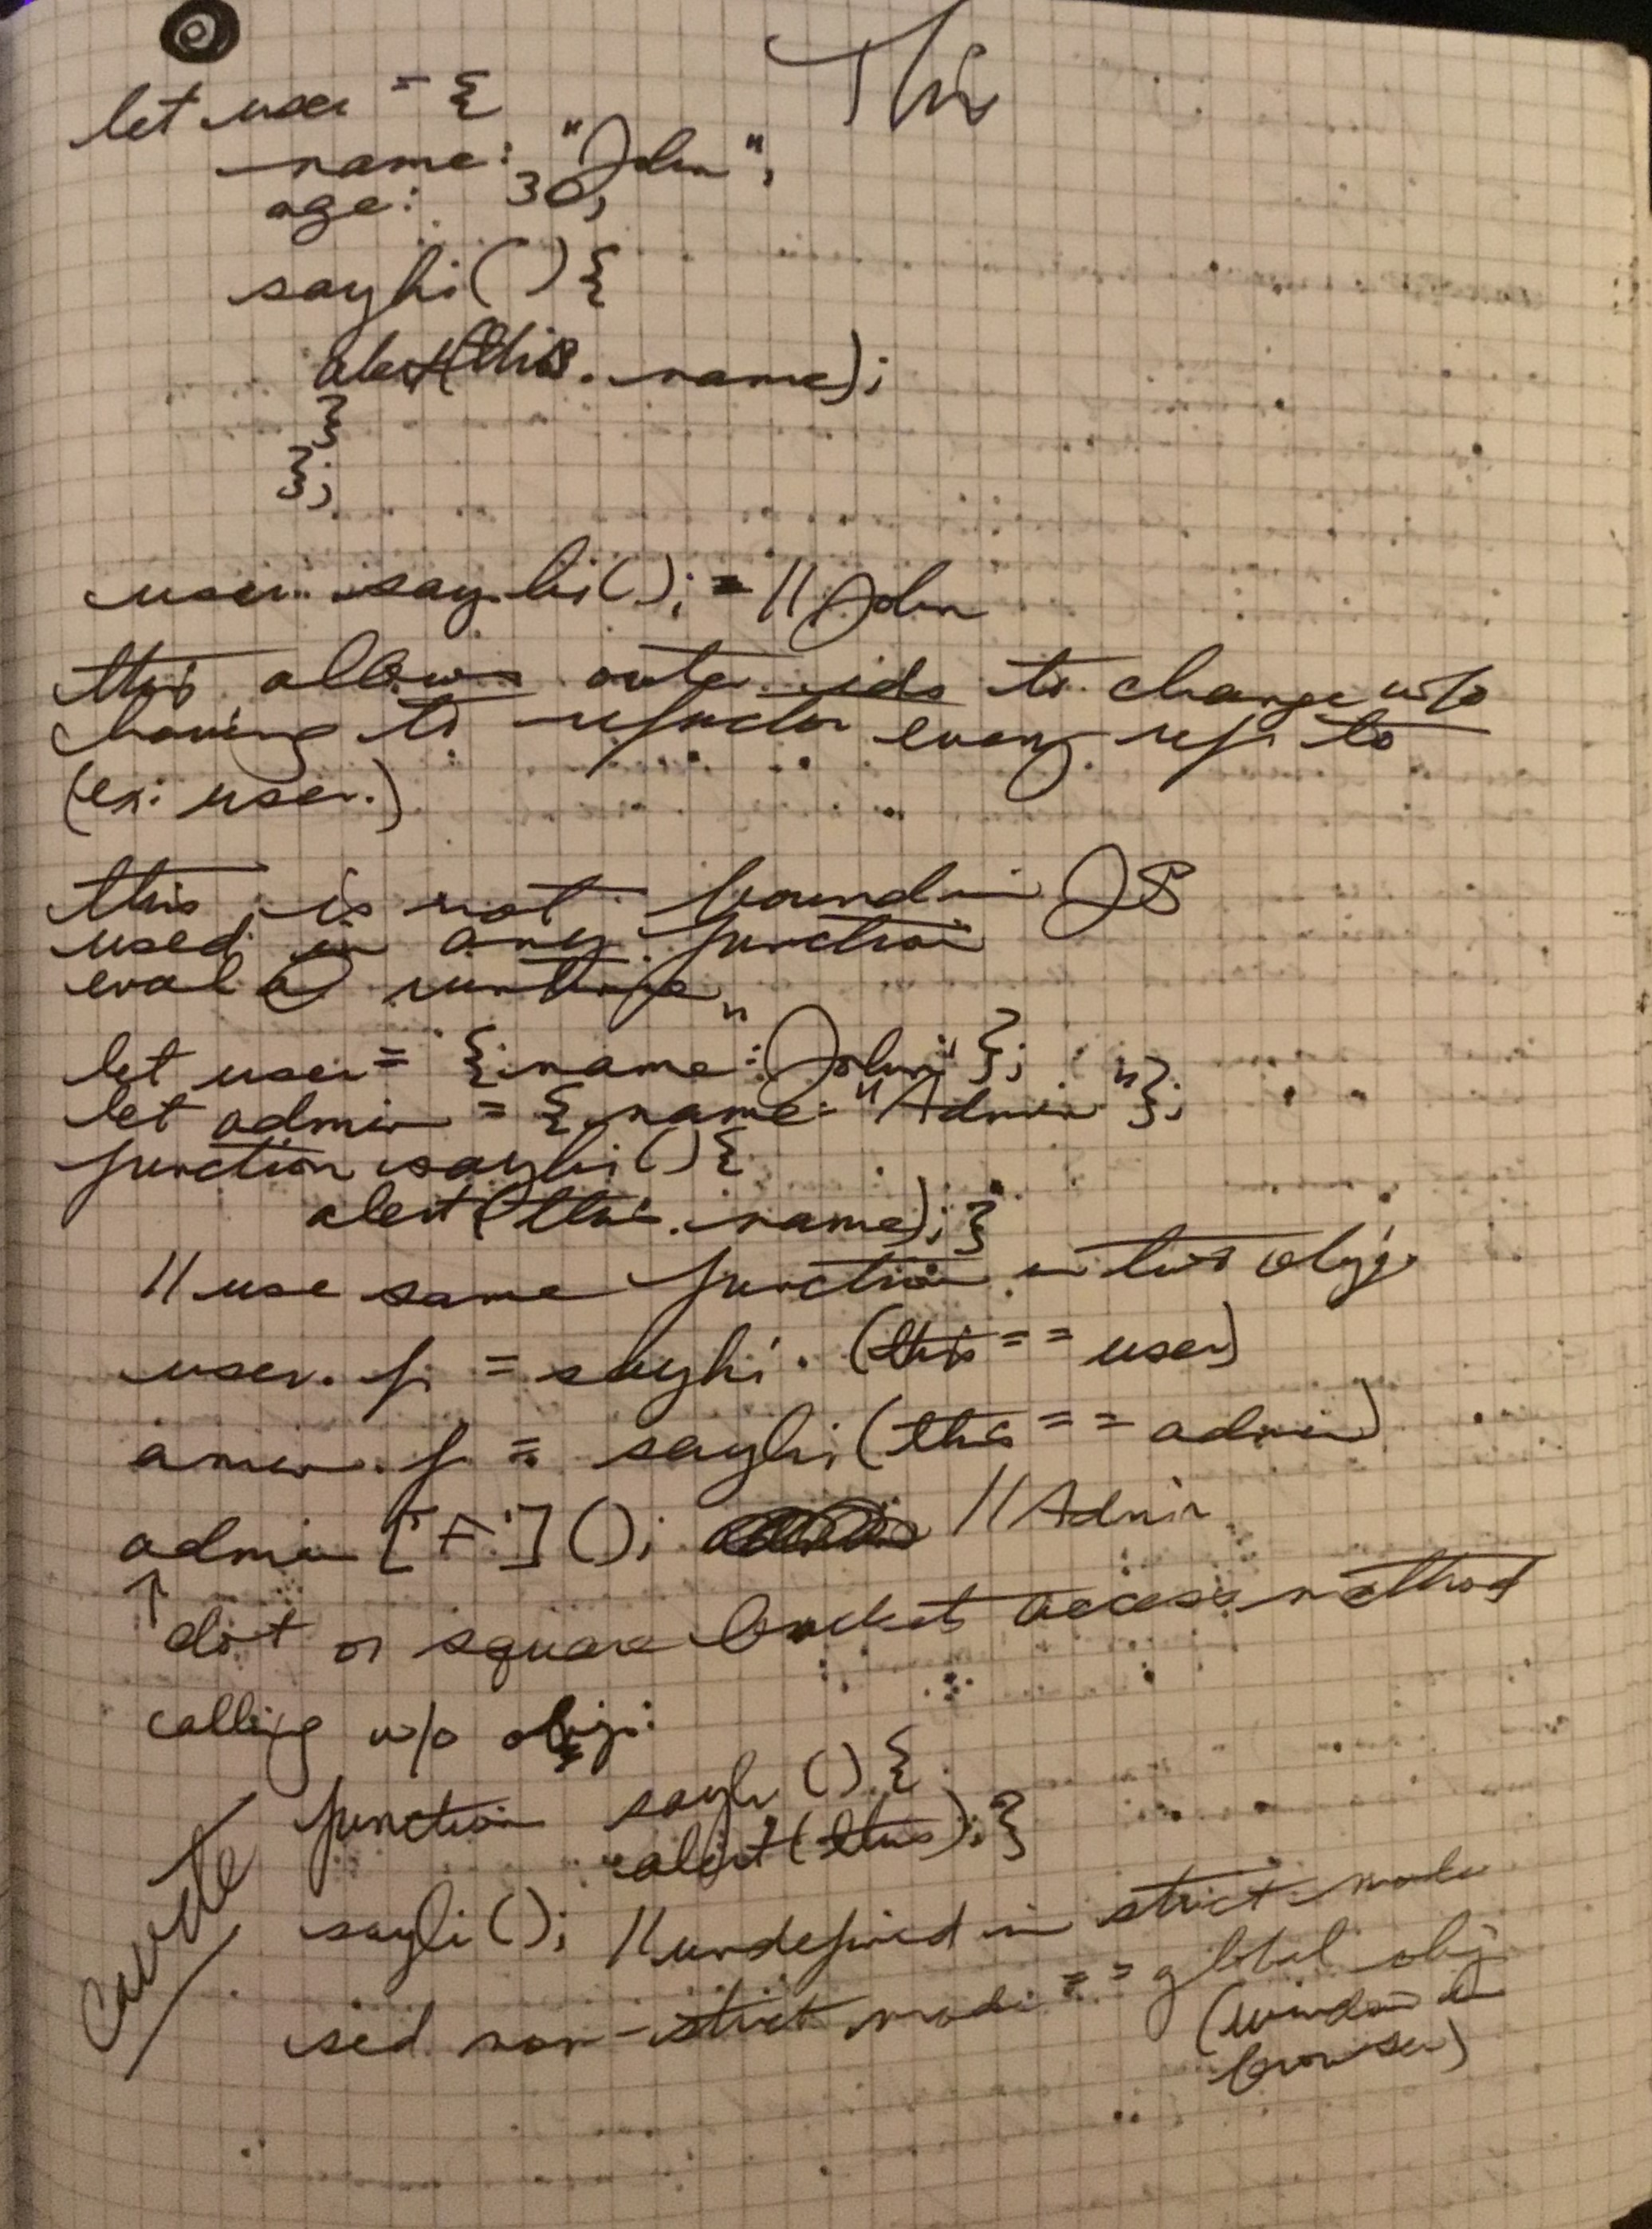 This
let user = {
name: "John",
age: 30,
sayhi() {
alert(this.name);
}
};
user.sayhi(); = // John
this allows outer ids to change w/o
having to refactor every ref to
(ex: user.)
this is not bound in JS
used in any function
eval @ runtime
let user = { name: "John" };
let admin = { name: "Admin" };
function sayhi() {
alert(this.name); }
// use same function in two obj.
user.f = sayhi. (this == user)
amin.f = sayhi (this == admin)
admin ['F'] (); // Admin
↑
dot or square bracket access method
calling w/o obj:
function sayhi () {
alert (this); }
cavete
sayhi (); // undefined in strict mode
sed non-strict mode == global obj
(window @
browser)